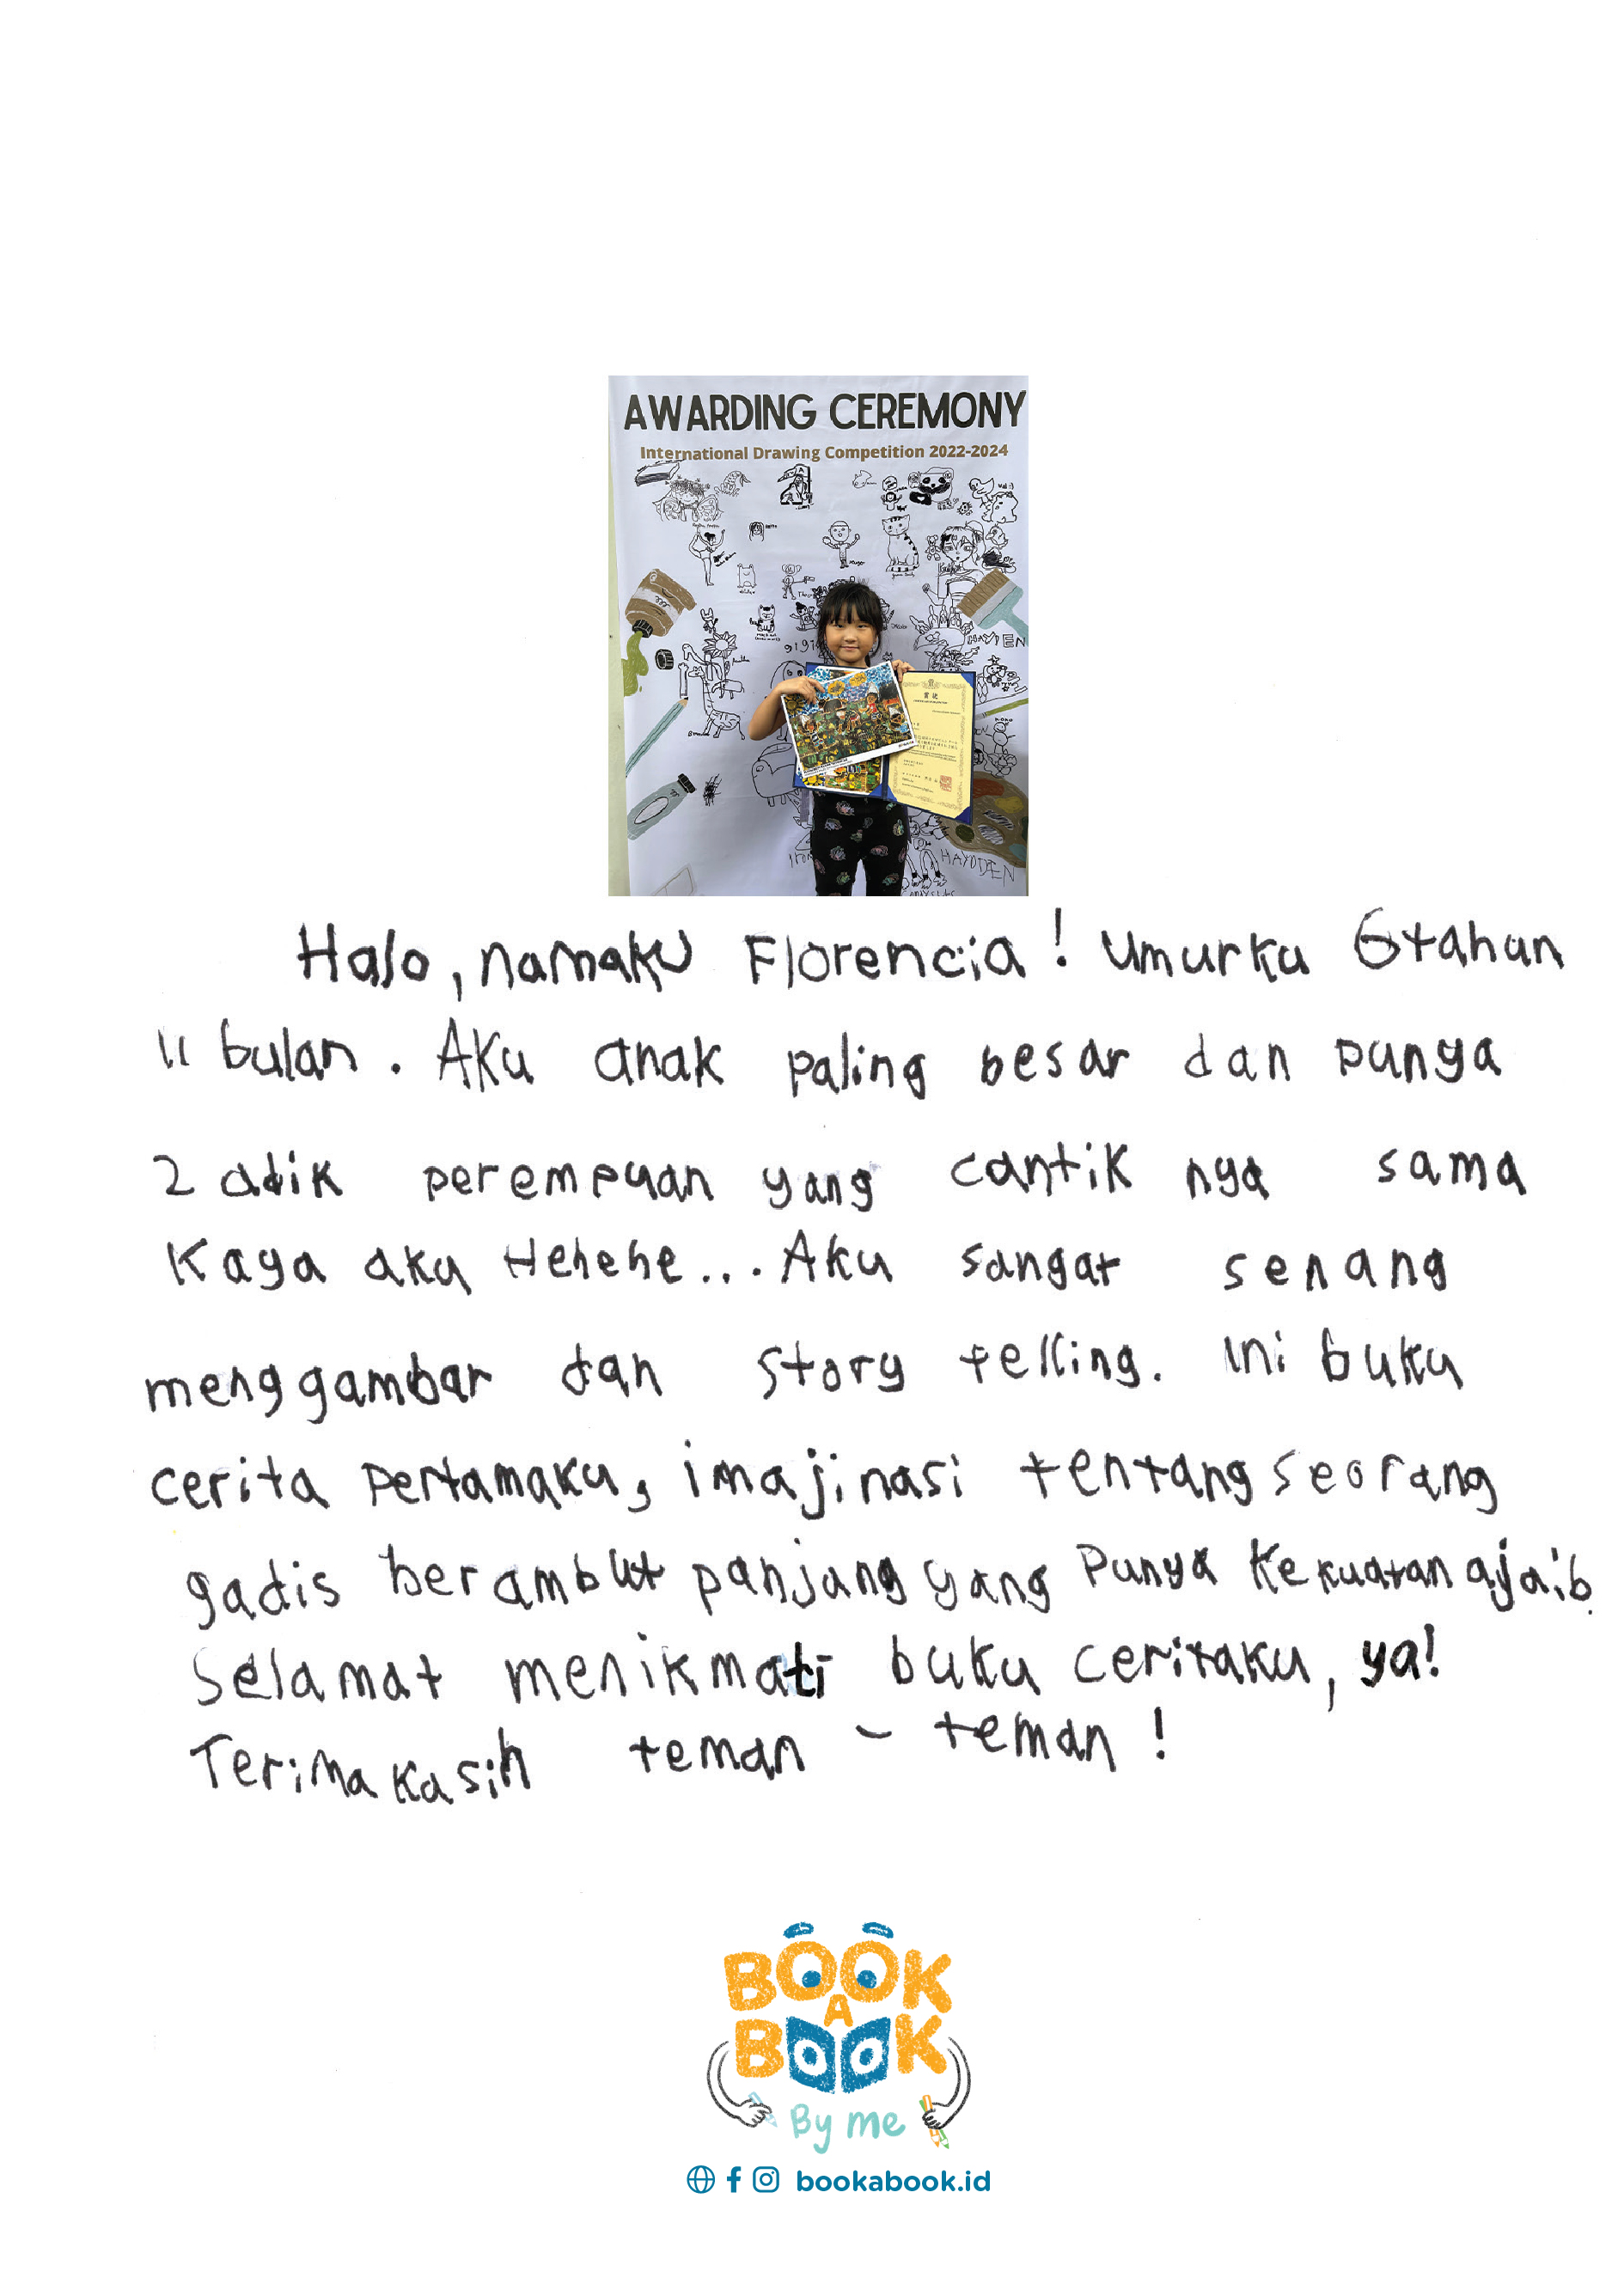 AWARDING CEREMONY
International Drawing Competition 2022-2024
HAYDEN
Halo, namaku Florencia! Umurku 6 tahun
11 bulan. Aku anak paling besar dan punya
2 adik perempuan yang cantik nya sama
Kaya aku Hehehe... Aku sangat senang
menggambar dan story telling. ini buku
cerita pertamaku, imajinasi tentang seorang
gadis berambut panjang yang Punya Kekuatan ajaib.
Selamat menikmati buku ceritaku, ya!
Terima kasih teman - teman!
BOOK
A
BOOK
By me
bookabook.id